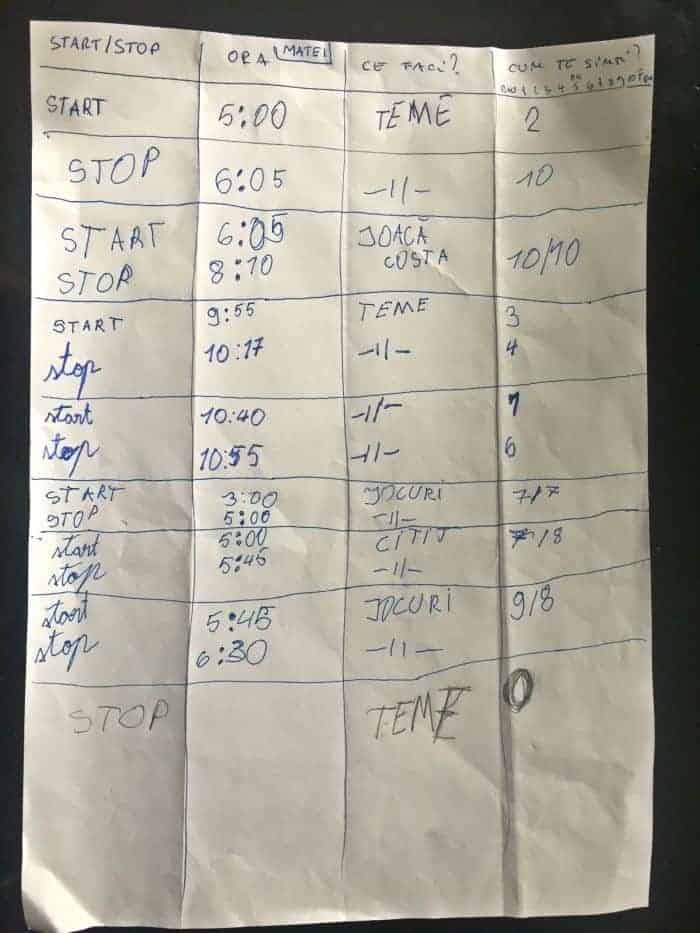 START/STOP ORA MATEI CE FACI? CUM TE SIMȚI?
1 2 3 4 5 6 7 8 9 10
START 5:00 TEME 2
STOP 6:05 -11- 10
START 6:05 JOACĂ
STOP 8:10 COSTA 10/10
START 9:55 TEME 3
stop 10:17 -11- 4
start 10:40 -11- 1
stop 10:55 -11- 6
START 3:00 JOCURI 7/7
STOP 5:00 -11-
start 5:00 CITIT /8
stop 5:45 -11-
start 5:45 JOCURI 9/8
stop 6:30 -11-
STOP TEME 0